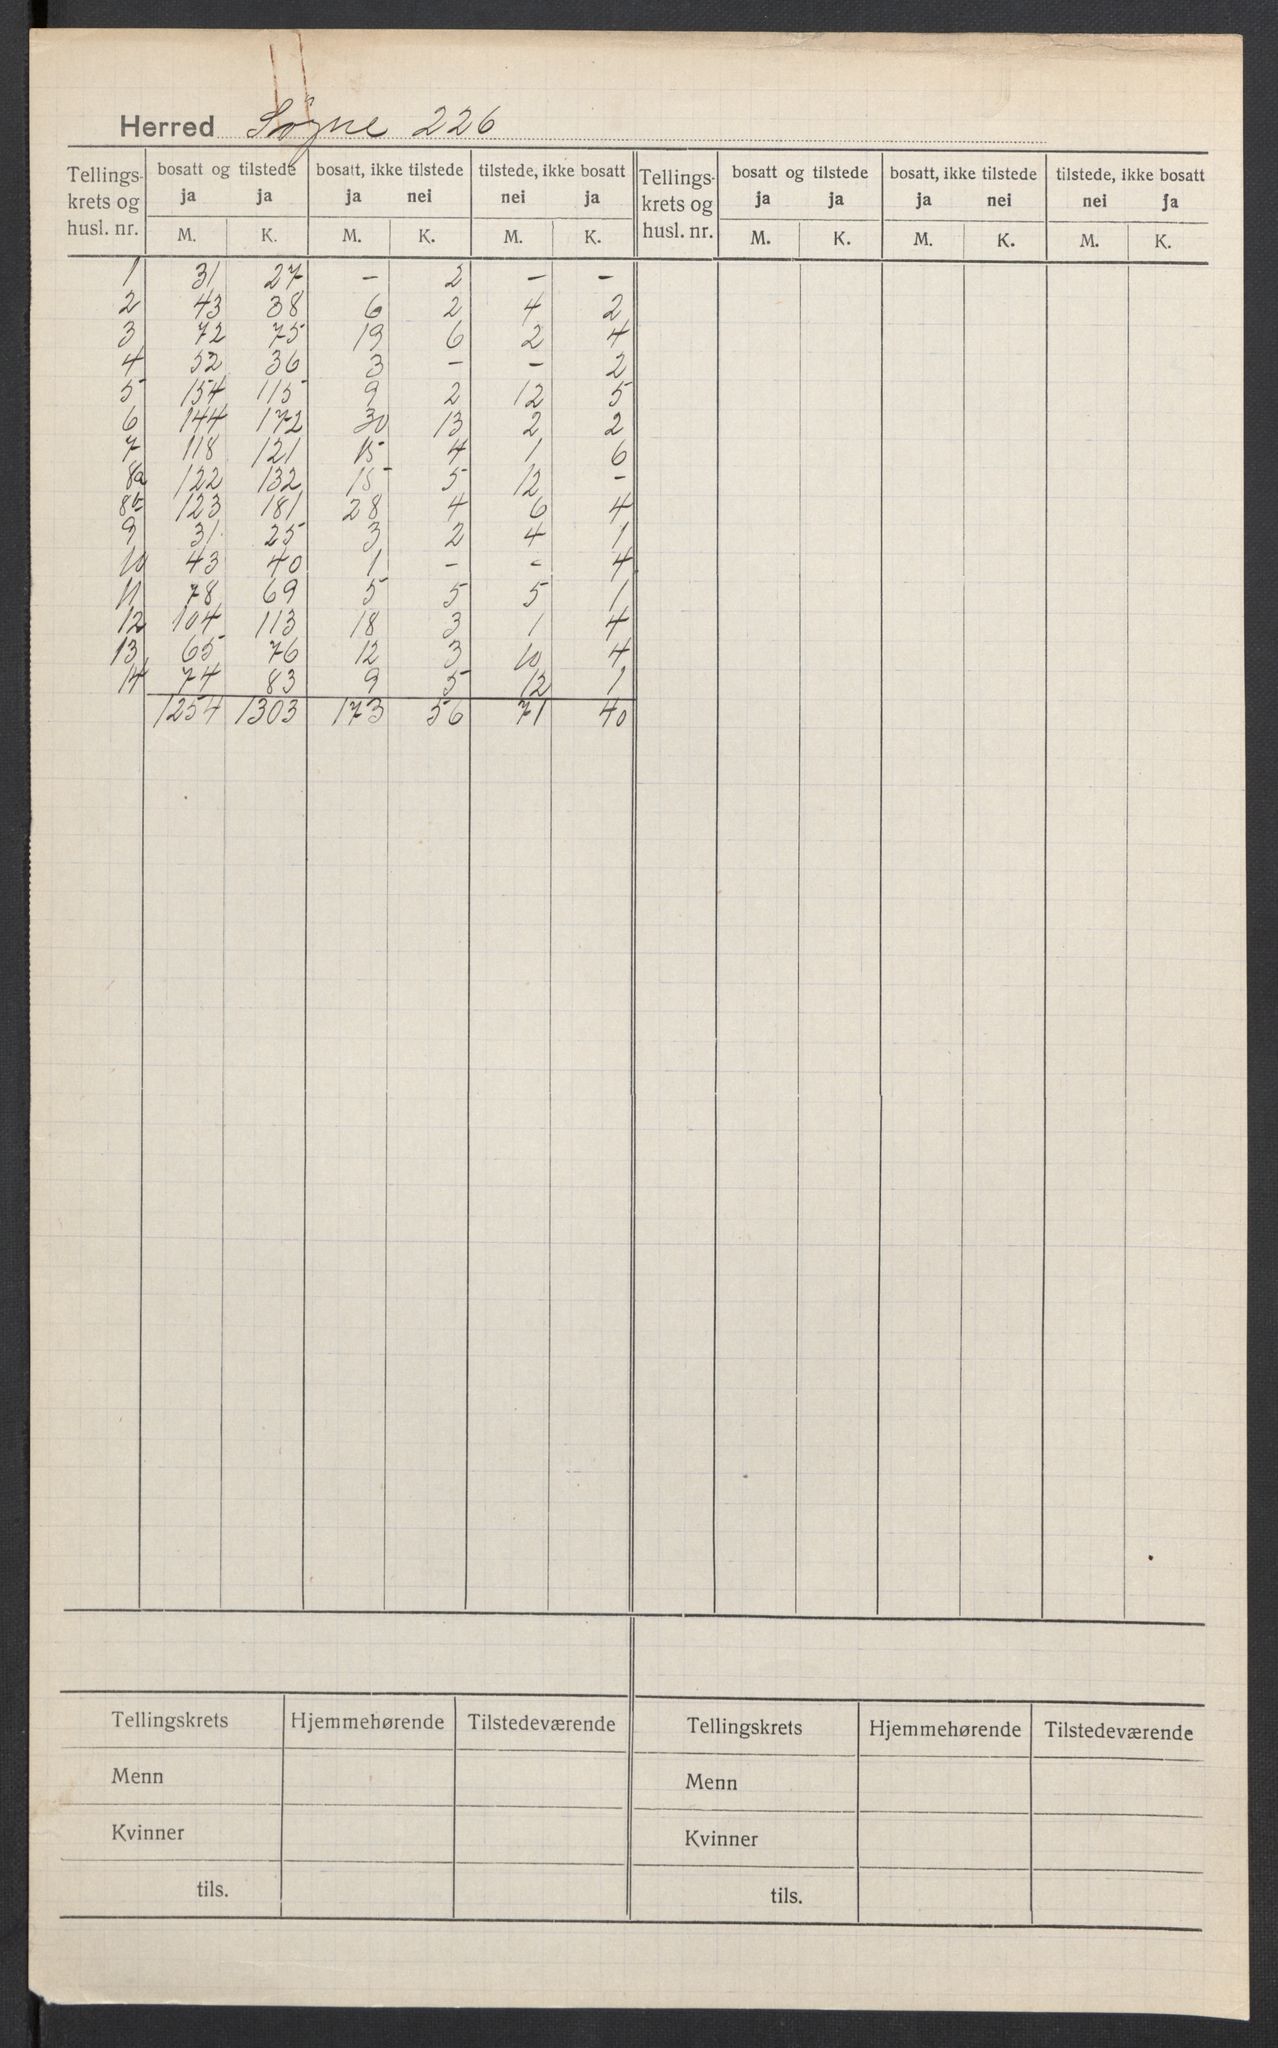 Herred Søgne 226
Tellings- krets og husl. nr. bosatt og tilstede ja ja bosatt, ikke tilstede ja nei tilstede, ikke bosatt nei ja Tellings- krets og husl. nr. bosatt og tilstede ja ja bosatt, ikke tilstede ja nei tilstede, ikke bosatt nei ja
M. K. M. K. M. K. M. K. M. K. M. K.
1 31 27 - 2 - -
2 43 38 6 2 4 2
3 72 75 19 6 2 4
4 52 36 3 - - 2
5 154 115 9 2 12 5
6 144 172 30 13 2 2
7 118 121 15 4 1 6
8a 122 132 15 5 12 -
8b 123 181 28 4 6 4
9 31 25 3 2 4 1
10 43 40 1 - - 4
11 78 69 5 5 5 1
12 104 113 18 3 1 4
13 65 76 12 3 10 4
14 74 83 9 5 12 1
1254 1303 173 56 71 40
Tellingskrets Hjemmehørende Tilstedeværende Tellingskrets Hjemmehørende Tilstedeværende
Menn Menn
Kvinner Kvinner
tils. tils.